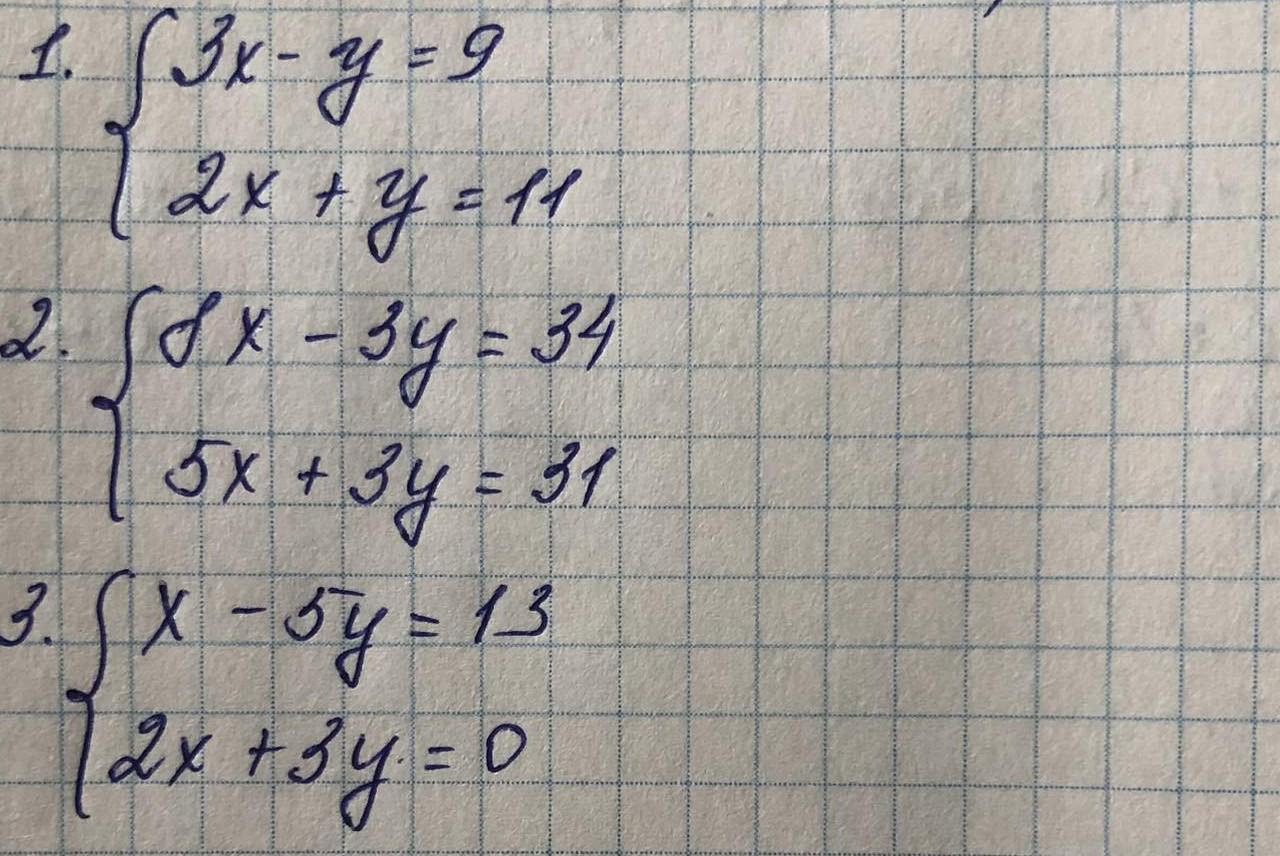 1. { 3x - y = 9
2x + y = 11
2. { 8x - 3y = 34
5x + 3y = 31
3. { x - 5y = 13
2x + 3y = 0